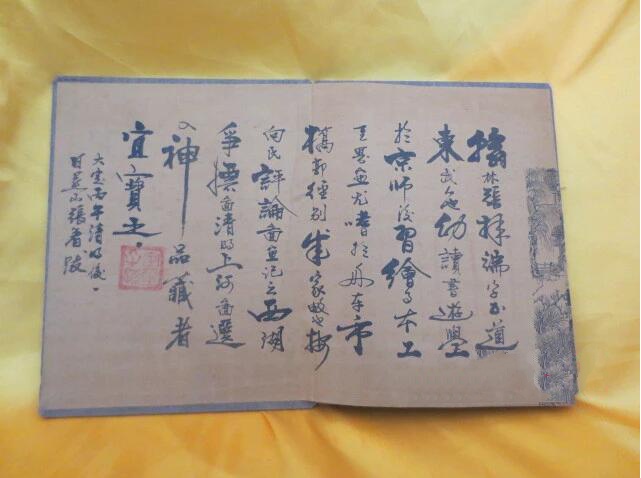 翰林張擇端字正道
東武人也幼讀書遊學
於京師後習繪事本工
其界畫尤嗜於舟車市
橋郭徑別成家數也按
向氏評論圖畫記云西湖
爭標圖清明上河圖選
入神品藏者
宜寶之
大定丙午清明後一
日燕山張著跋